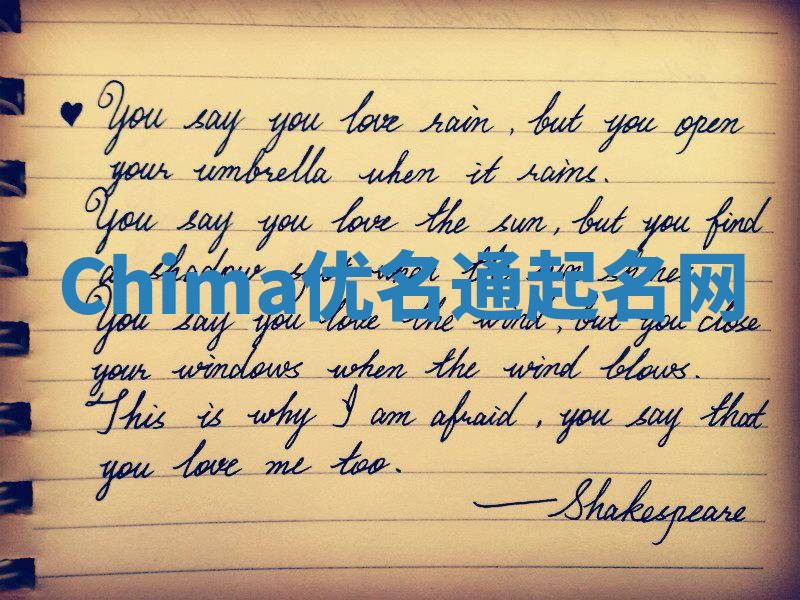 You say you love rain, but you open
your umbrella when it rains.
You say you love the sun, but you find
a shadow spot when the sun shines.
Chima优名通起名网
You say you love the wind, but you close
your windows when the wind blows.
This is why I am afraid, you say that
you love me too.
—Shakespeare